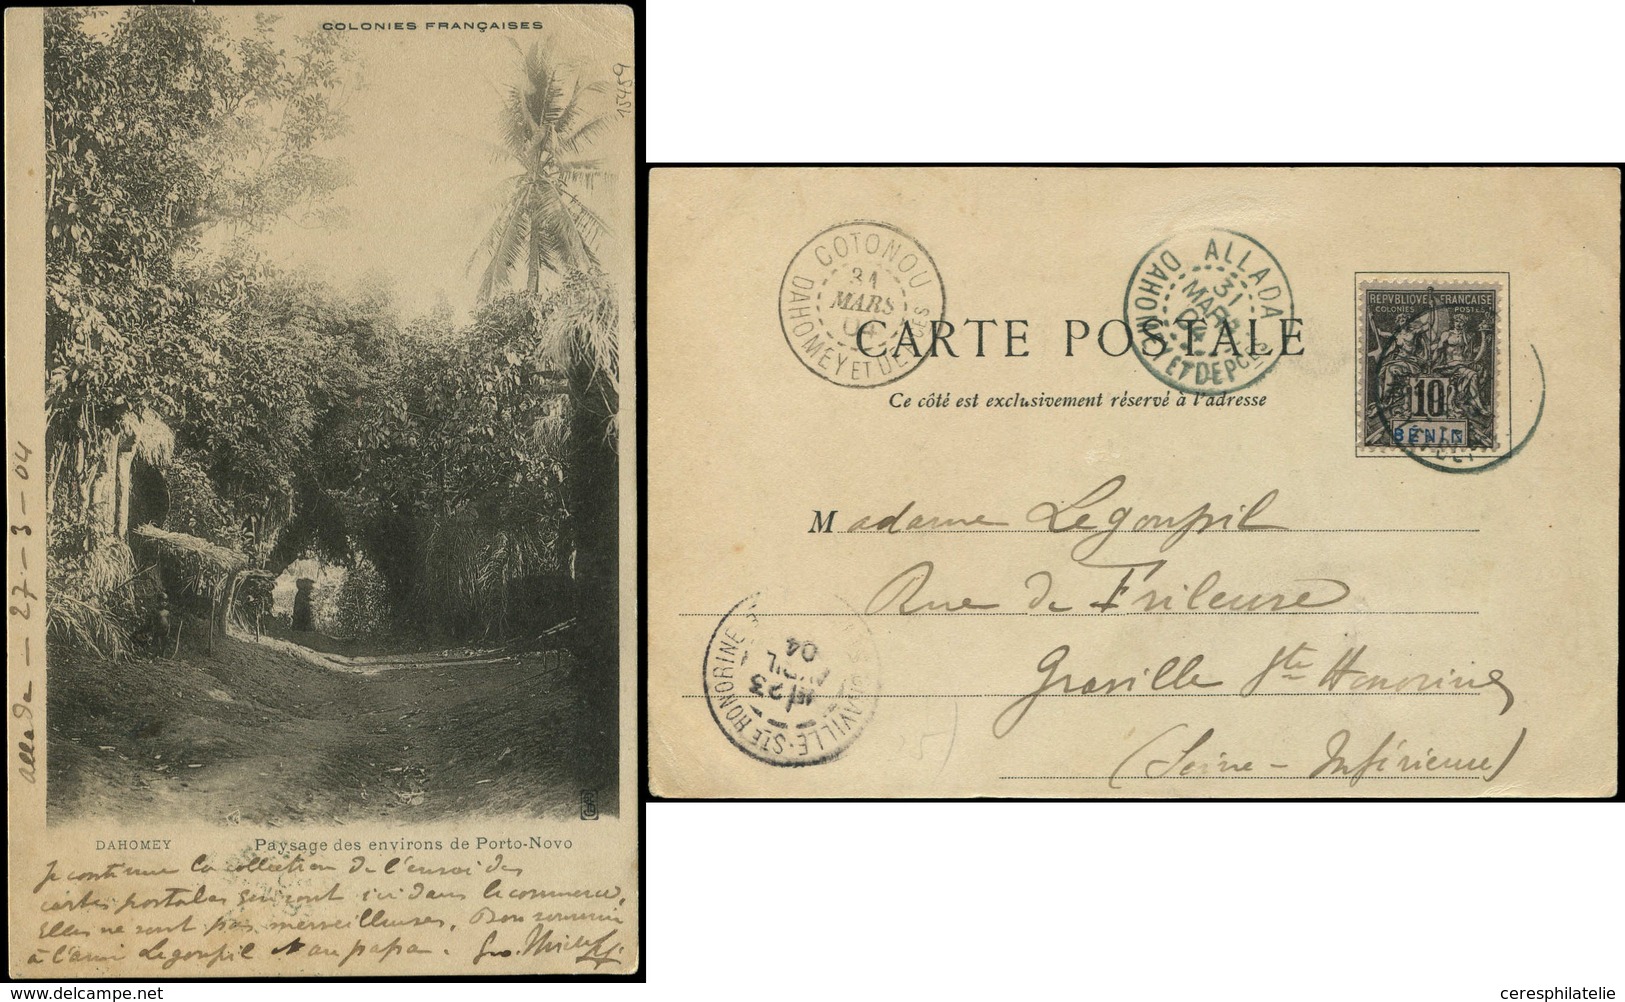 COLONIES FRANÇAISES
15459
allada — 27 - 3 - 04
DAHOMEY Paysage des environs de Porto-Novo
Je continue la collection de l'envoi des
cartes postales qui sont ici dans le commerce,
elles ne sont pas merveilleuses. Bon souvenir
à l'ami Legoupil & au papa. Geo.
COTONOU
31
MARS
04
DAHOMEY ET DEPCES
ALLADA
31
MARS
04
DAHOMEY ET DEPCES
REPUBLIQUE FRANÇAISE
COLONIES POSTES
10
BÉNIN
CARTE POSTALE
Ce côté est exclusivement réservé à l'adresse
Madame Legoupil
Rue de Frileuse
Graville Ste Honorine
(Seine - Inférieure)
GRAVILLE-STE HONORINE
23
AVRIL
04
www.delcampe.net
ceresphilatelie